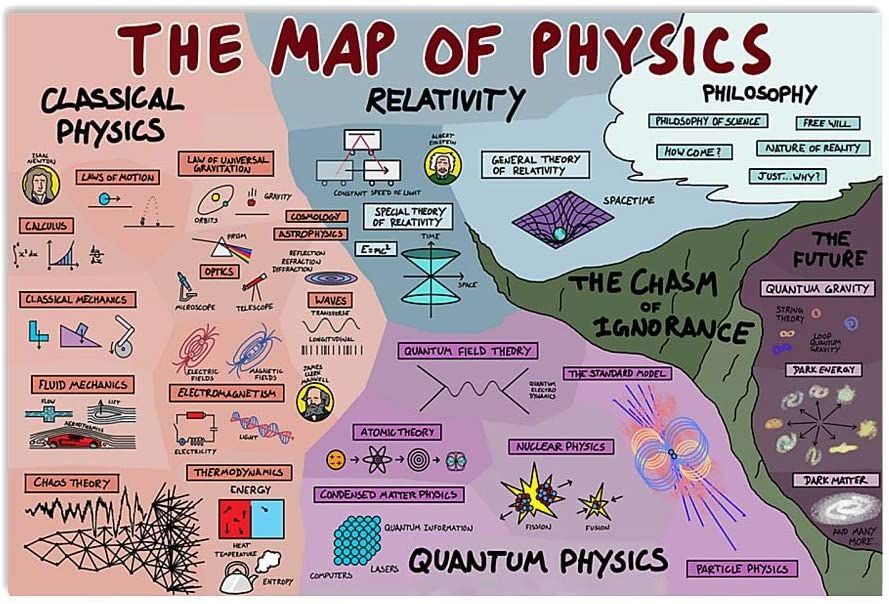 THE MAP OF PHYSICS
CLASSICAL
PHYSICS
ISAAC
NEWTON
LAWS OF MOTION
LAW OF UNIVERSAL
GRAVITATION
ORBITS
GRAVITY
CALCULUS
∫x² dx
COSMOLOGY
ASTROPHYSICS
PRISM
REFLECTION
REFRACTION
DIFFRACTION
OPTICS
MICROSCOPE
TELESCOPE
CLASSICAL MECHANICS
WAVES
TRANSVERSE
LONGITUDINAL
ELECTRIC
FIELDS
MAGNETIC
FIELDS
JAMES
CLERK
MAXWELL
FLUID MECHANICS
FLOW
LIFT
AERODYNAMICS
ELECTROMAGNETISM
ELECTRICITY
LIGHT
CHAOS THEORY
THERMODYNAMICS
ENERGY
HEAT
TEMPERATURE
ENTROPY
RELATIVITY
CONSTANT SPEED OF LIGHT
ALBERT
EINSTEIN
GENERAL THEORY
OF RELATIVITY
SPACETIME
SPECIAL THEORY
OF RELATIVITY
E=mc²
TIME
SPACE
PHILOSOPHY
PHILOSOPHY OF SCIENCE
FREE WILL
HOW COME?
NATURE OF REALITY
JUST...WHY?
THE CHASM
OF
IGNORANCE
THE
FUTURE
QUANTUM GRAVITY
STRING
THEORY
LOOP
QUANTUM
GRAVITY
DARK ENERGY
DARK MATTER
AND MANY
MORE...
QUANTUM FIELD THEORY
QUANTUM
ELECTRO
DYNAMICS
THE STANDARD MODEL
ATOMIC THEORY
NUCLEAR PHYSICS
FISSION
FUSION
CONDENSED MATTER PHYSICS
QUANTUM INFORMATION
COMPUTERS
LASERS
QUANTUM PHYSICS
PARTICLE PHYSICS